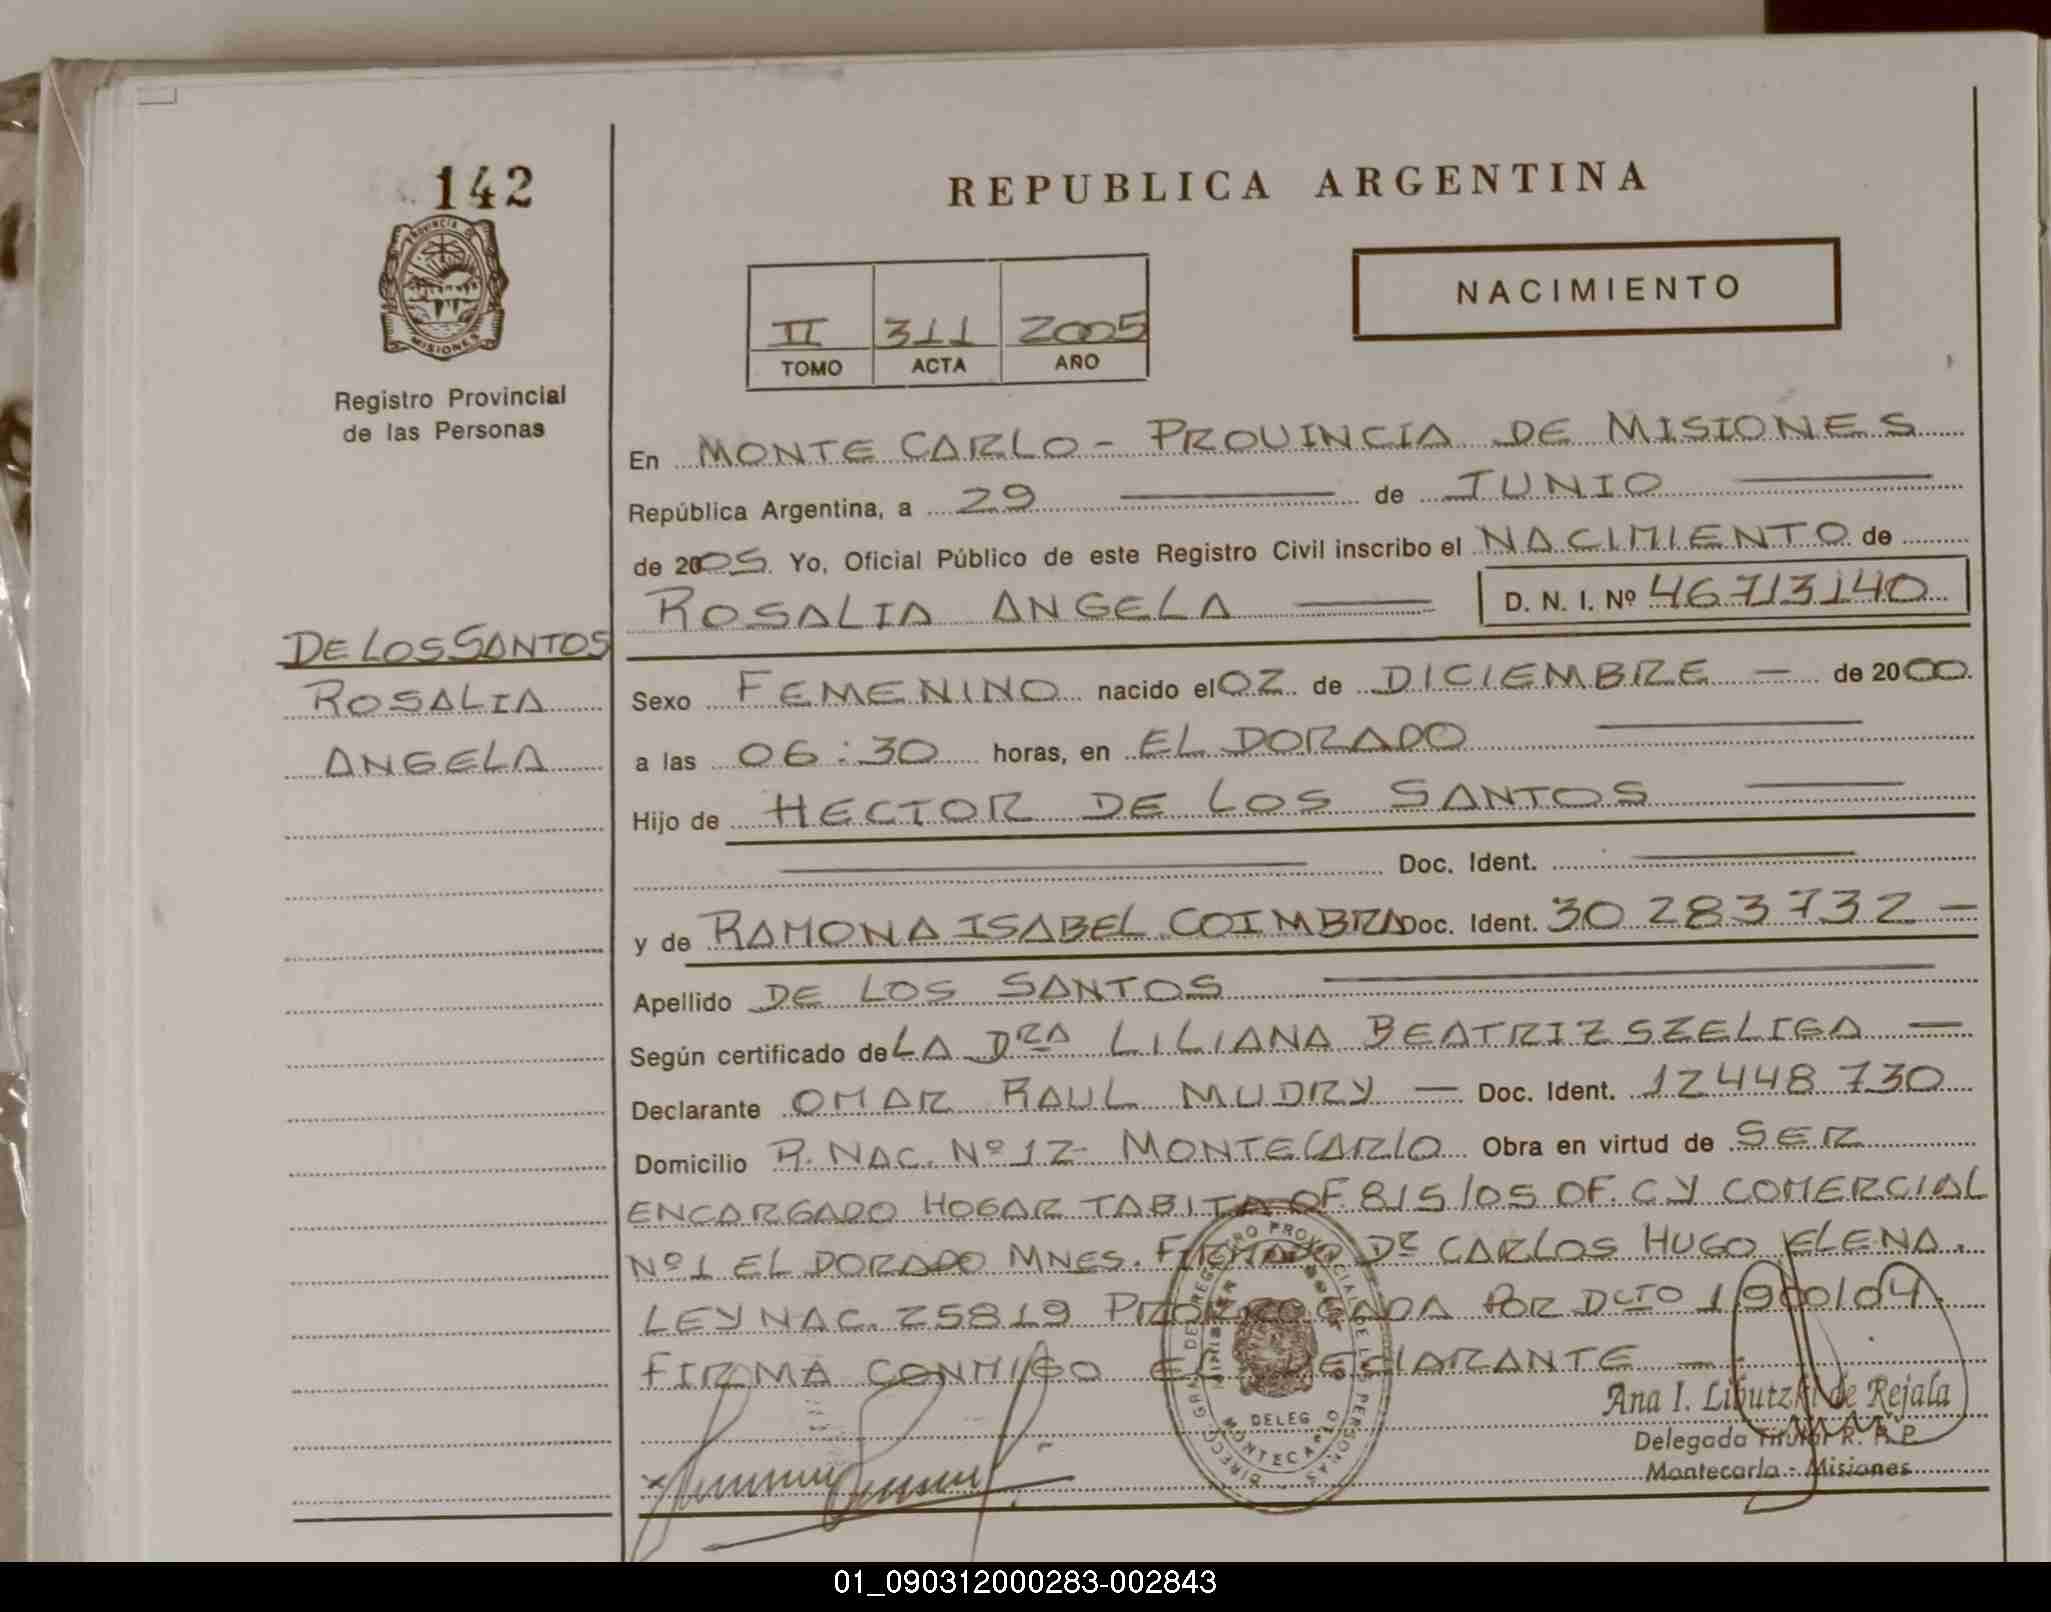 142
PROVINCIA DE
MISIONES
Registro Provincial
de las Personas
DE LOS SANTOS
ROSALIA
ANGELA
REPUBLICA ARGENTINA
NACIMIENTO
II 311 2005
TOMO ACTA AÑO
En MONTE CARLO - PROVINCIA DE MISIONES
República Argentina, a 29 de JUNIO
de 2005. Yo, Oficial Público de este Registro Civil inscribo el NACIMIENTO de
ROSALIA ANGELA D. N. I. Nº 46713140
Sexo FEMENINO nacido el 02 de DICIEMBRE de 2000.
a las 06:30 horas, en EL DORADO
Hijo de HECTOR DE LOS SANTOS
Doc. Ident.
y de RAMONA ISABEL COIMBRA Doc. Ident. 30 283 732
Apellido DE LOS SANTOS
Según certificado de LA DRA LILIANA BEATRIZ SZELIGA
Declarante OMAR RAUL MUDRY Doc. Ident. 12 448 730
Domicilio R. NAC. Nº 12 - MONTECARLO Obra en virtud de SER
ENCARGADO HOGAR TABITA OF. 815/05 OF. C Y COMERCIAL
Nº 1 EL DORADO MNES. FIRMADO Dr CARLOS HUGO ELENA.
LEY NAC. 25819 PRORROGADA POR DCTO 1900/04.
FIRMA CONMIGO EL DECLARANTE
DELEG
MONTECARLO
Ana I. Libutzki de Rejala
Delegada Titular R. P. P.
Montecarlo - Misiones
01_090312000283-002843